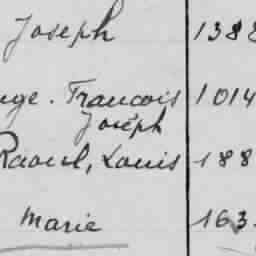 Joseph 138
nge. Francois 1014
Joseph
Raoul, Louis 188
Marie 163